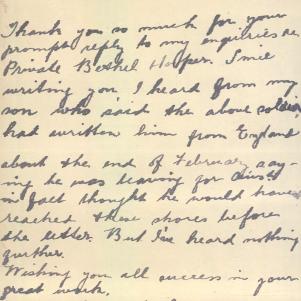 Thank you so much for your
prompt reply to my enquiries re.
Private Bethel Hooper. Since
writing you I heard from my
son who said the above soldier
had written him from England
about the end of February say-
ing he was leaving for
in fact thought he would have
reached these shores before
the letter. But I've heard nothing
further.
Wishing you all success in your
great work.